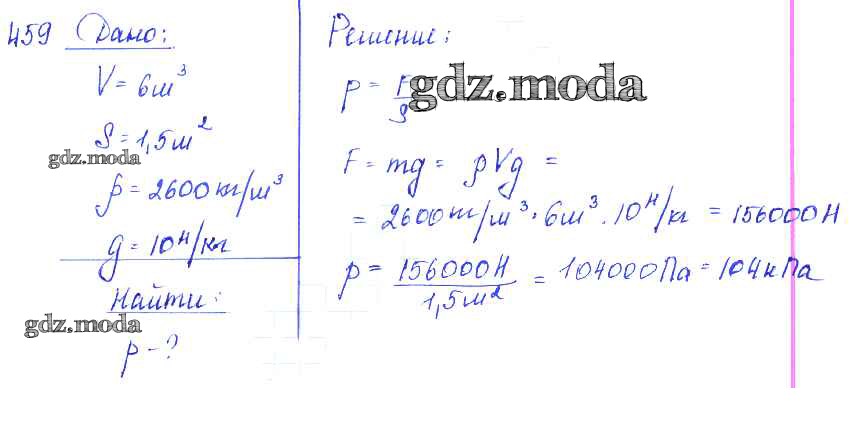 459 Дано:
V = 6 м³
S = 1,5 м²
gdz.moda
ρ = 2600 кг/м³
g = 10 Н/кг
Найти:
gdz.moda
p - ?
Решение:
p = F/S
gdz.moda
F = mg = ρVg =
= 2600 кг/м³ · 6 м³ · 10 Н/кг = 156000 Н
p = 156000 Н / 1,5 м² = 104000 Па = 104 кПа